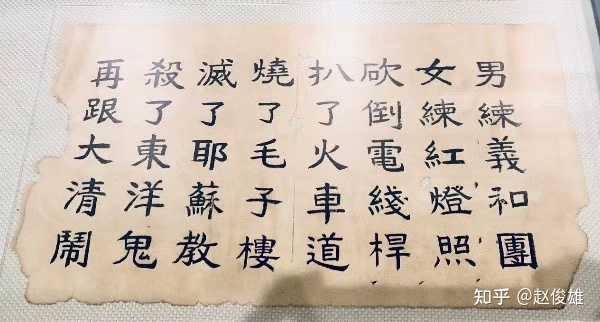 男練義和團
女練紅燈照
砍倒電綫桿
扒了火車道
燒了毛子樓
滅了耶蘇教
殺了東洋鬼
再跟大清鬧
知乎 @赵俊雄